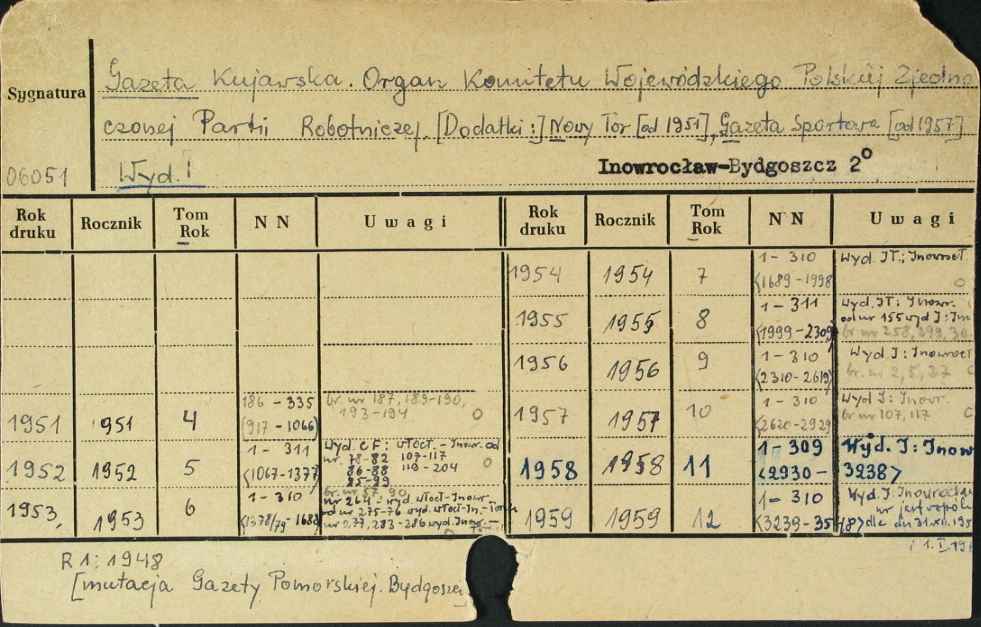 Sygnatura
Gazeta Kujawska. Organ Komitetu Wojewódzkiego Polskiej Zjedno
czonej Partii Robotniczej. [Dodatki:] Nowy Tor [od 1951], Gazeta Sportowa [od 1957]
06051 Wyd. I Inowrocław-Bydgoszcz 2°
Rok druku Rocznik Tom Rok NN Uwagi Rok druku Rocznik Tom Rok NN Uwagi
1954 1954 7 1-310 (1689-1998 Wyd. Inowrocł.
1955 1955 8 1-311 (1999-2309) Wyd. Inowr. od nr 155 wyd I: In
br. nr 258, 299, 30
1956 1956 9 1-310 (2310-2619) Wyd I: Inowrocł
br. nr 2, 5, 37
1951 1951 4 186-335 (917-1066) br. nr 187, 189-190, 193-194 O
1957 1957 10 1-310 (2620-2929 Wyd I: Inowr.
br nr 107, 117
1952 1952 5 1-311 (1067-1377) Wyd. włocł.-Inowr. od nr. 78-82 107-117 86-88 119-204 O
1958 1958 11 1-309 <2930-3238> Wyd. I: Inow
1953, 1953 6 1-310 (1378/79-1688 nr 264: wyd. włocł-Inowr. od nr 275-76 wyd. włocł-In.-Tor
nr 277, 283-286 wyd. Inowr.-
1959 1959 12 1-310 (3239-3548) Wyd. I. Inowrocław
R 1: 1948
[mutacja Gazety Pomorskiej. Bydgoszcz]